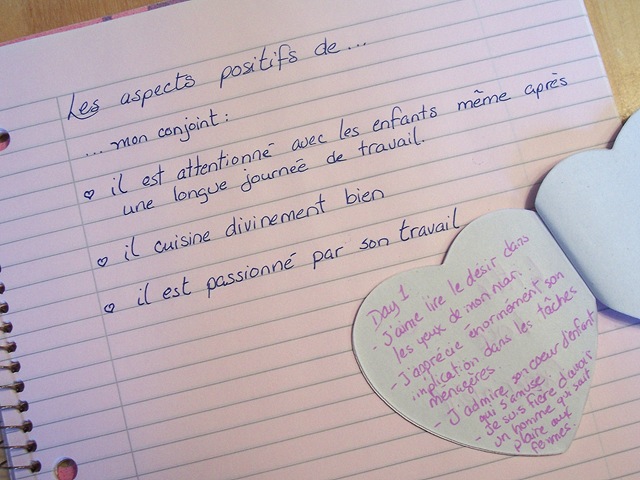 Les aspects positifs de...
... mon conjoint :
il est attentionné avec les enfants même après
une longue journée de travail.
il cuisine divinement bien
il est passionné par son travail
Day 1
- J'aime lire le désir dans
les yeux de mon mari.
- J'apprécie énormément son
implication dans les tâches
ménagères.
- J'admire son coeur d'enfant
qui s'amuse.
- Je suis fière d'avoir
un homme qui sait
plaire aux
femmes.